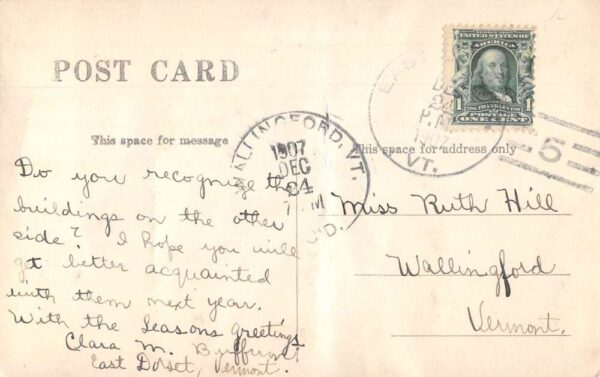 POST CARD
This space for message
This space for address only
SERIES 1902
UNITED STATES OF
AMERICA
1 FRANKLIN 1
POSTAGE
ONE CENT
EAST
DEC
24
P.M
1907
VT.
5
WALLINGFORD, VT.
1907
DEC
24
7 M
REC'D.
Do you recognize the
buildings on the other
side? I hope you will
get better acquainted
with them next year.
With the Seasons greetings,
Clara M. Buffum
East Dorset, Vermont.
Miss Ruth Hill
Wallingford
Vermont.